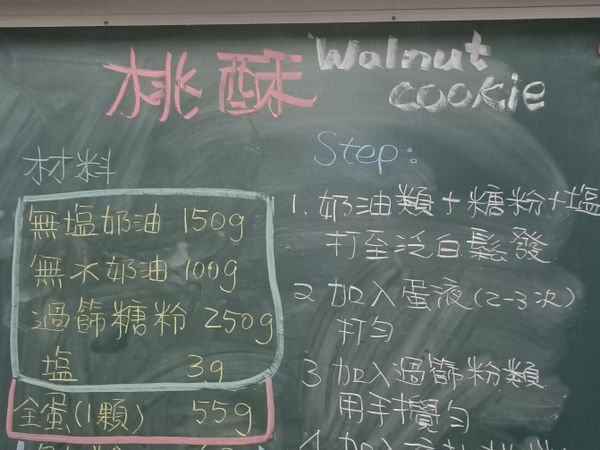 桃酥 Walnut cookie
材料
無塩奶油 150g
無水奶油 100g
過篩糖粉 250g
塩 3g
全蛋(1顆) 55g
Step:
1. 奶油類+糖粉+塩
打至泛白鬆發
2 加入蛋液(2-3次)
打勻
3 加入過篩粉類
用手攪勻
4 加入